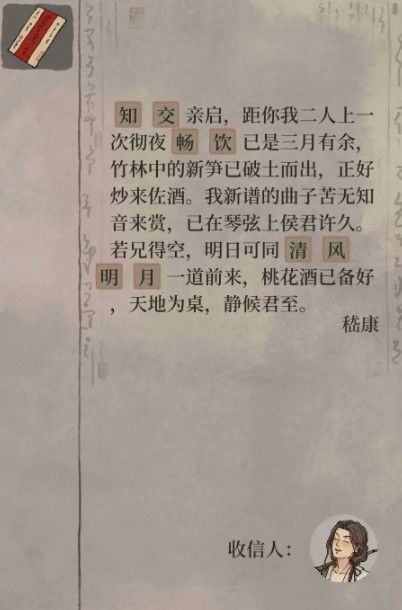 知交亲启，距你我二人上一
次彻夜畅饮已是三月有余，
竹林中的新笋已破土而出，正好
炒来佐酒。我新谱的曲子苦无知
音来赏，已在琴弦上侯君许久。
若兄得空，明日可同清风
明月一道前来，桃花酒已备好
，天地为桌，静候君至。
嵇康
收信人：